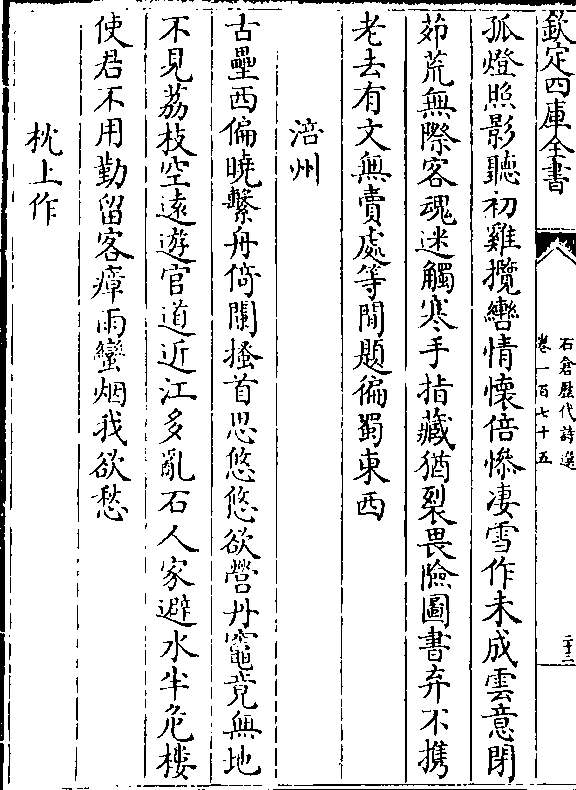 欽定四庫全書
石倉歷代詩選
卷一百七十五
二十二
孤燈照影聽初雞攬轡情懷倍慘凄雪作未成雲意閉
茆荒無際客魂迷觸寒手指藏猶裂畏險圖書弃不携
老去有文無賣處等閒題徧蜀東西
涪州
古壘西偏曉繫舟倚闌搔首思悠悠欲營丹竈竟無地
不見荔枝空遠遊官道近江多亂石人家避水半危樓
使君不用勤留客瘴雨蠻烟我欲愁
枕上作